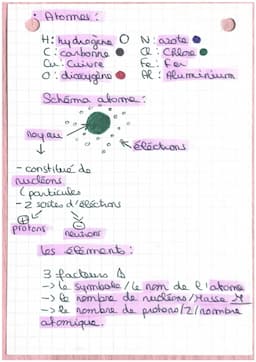 • Atomes :
H : hydrogène N : azote
C : carbone Cl : Chlore
Cu : Cuivre Fe : Fer
O : dioxygène Al : Aluminium
Schéma atome :
noyau
électrons
- constitué de
nucléons
( particules
- 2 sortes d'électrons
+ -
protons neutrons
Les éléments :
3 facteurs
-> le symbole / le nom de l'atome
-> le nombre de nucléons / Masse M
-> le nombre de protons / Z / nombre
atomique.